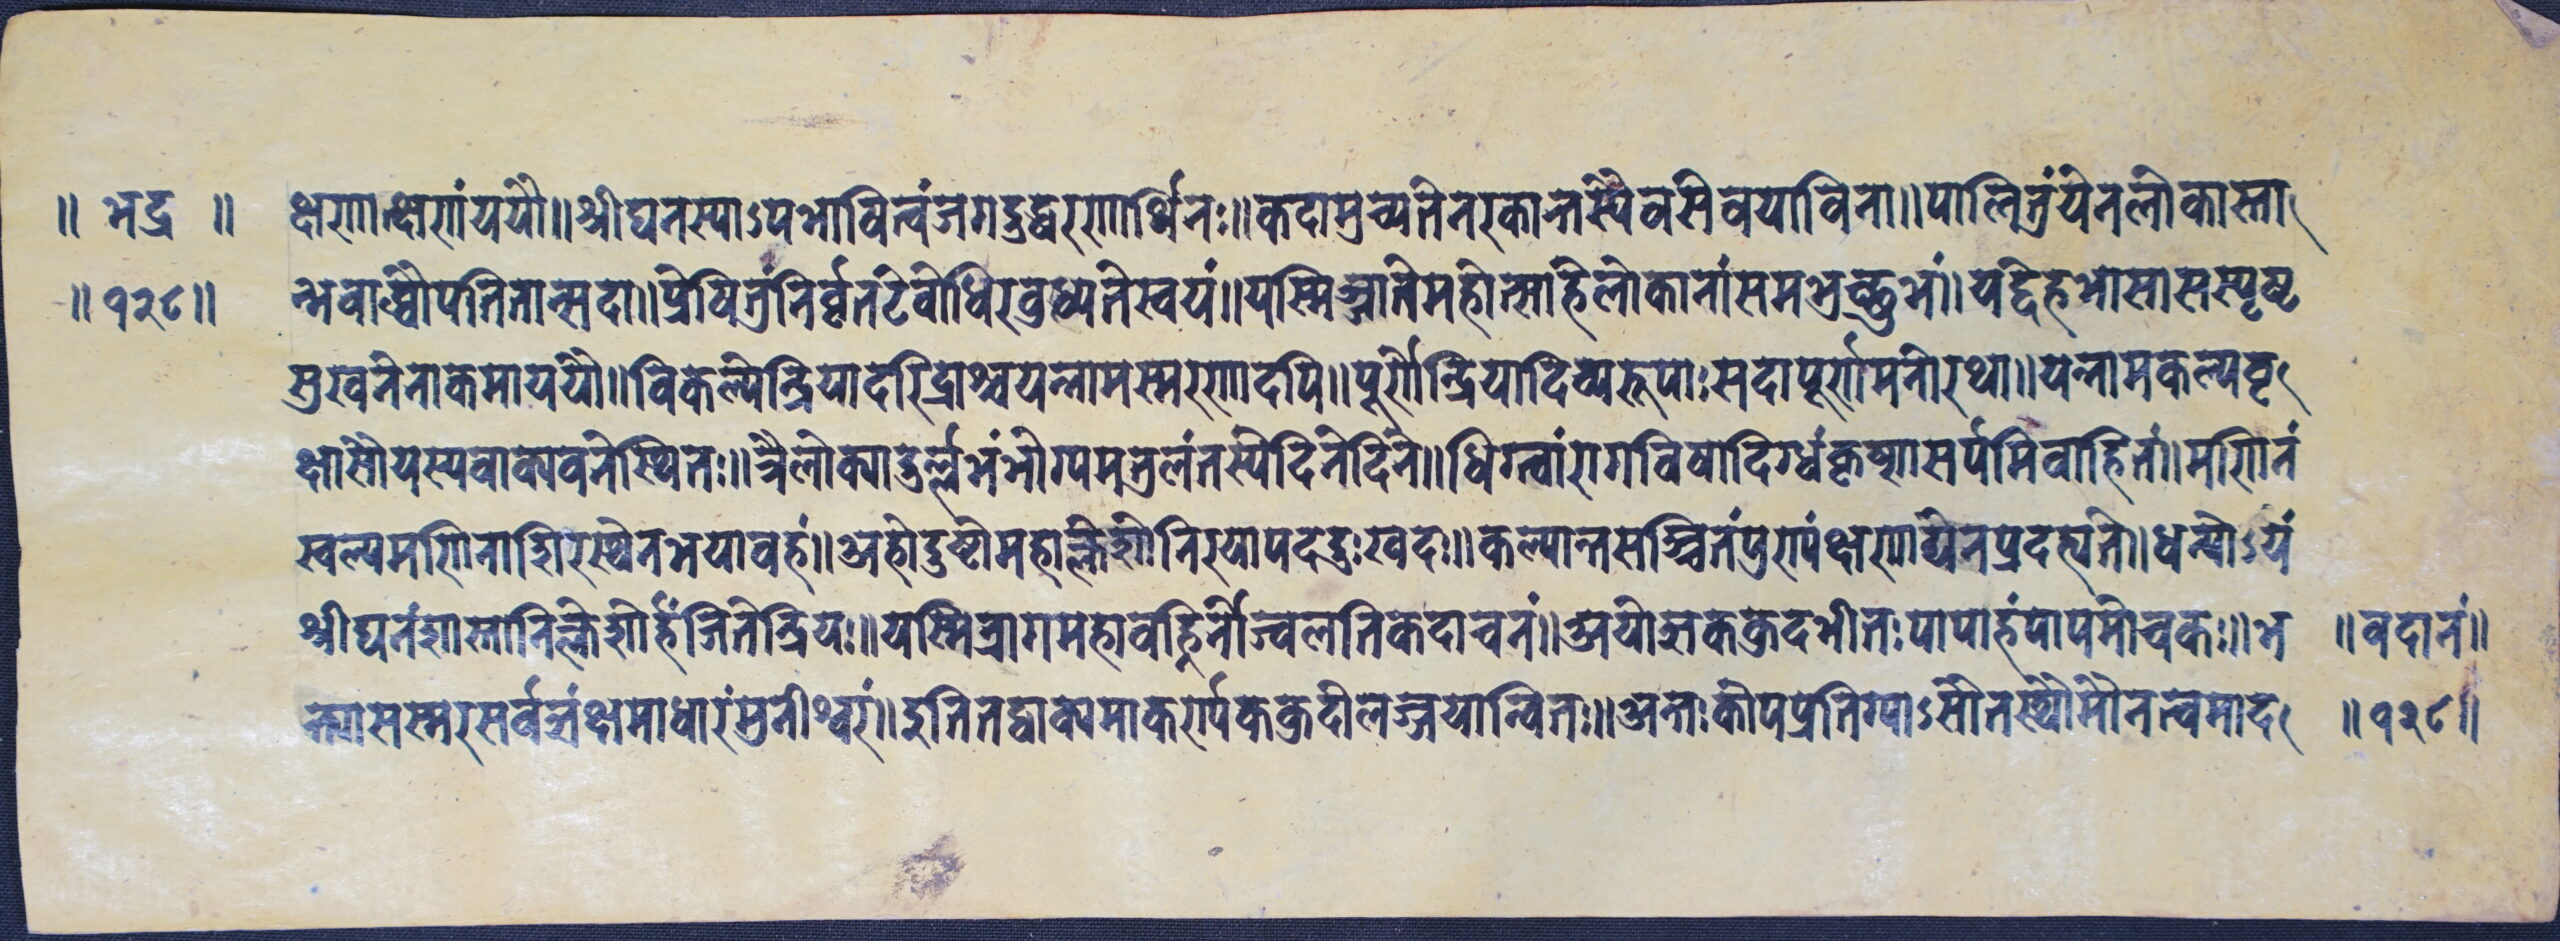 ॥ भद्र ॥ क्षणात्क्षणंययौ॥श्रीघनस्याऽपभावित्वंजगदुद्धरणार्थिनः॥कदामुच्यतेनरकान्तस्यैवसेवयाविना॥पालितुंयेनलोकास्ता
॥१२८॥ न्भवाब्धौपतितान्सदा॥प्रेषितुंनिर्वृतटेबोधिरवुध्यतेस्वयं॥यस्मिञ्जातेमहोत्साहेलोकानांसमभूच्छुभं॥यद्देहभासासस्पृष्ट
सुखेनेनाकमाययौ॥विकलेन्द्रियादरिद्राश्चयन्नामस्मरणादपि॥पूर्णेन्द्रियादिव्यरूपाःसदापूर्णमनोरथा॥यन्नामकल्पवृ
क्षासौयस्यवाक्यवनेस्थितः॥त्रैलोक्यादुर्ल्लभंभोग्यमतुलंतस्यदिनेदिने॥धिग्त्वांरागविषादिग्धंकृष्णसर्पमिवाहितं॥मणिनं
स्वल्पमणिनाशिरस्थेनभयावहं॥अहोदुष्टोमहाक्लेशोनिरयापददुःखदः॥कल्पान्तसञ्चितंपुण्यंक्षणाद्येनप्रदह्यते॥धन्योऽयं
श्रीघनंशास्तानिक्लेशोर्हंजितेन्द्रियः॥यस्मिन्रागमहावह्निर्नोज्वलतिकदाचनं॥अयोज्ञककुदभीतःपापाहंपापमोचकः॥भ ॥वदानं॥
क्त्यासस्मरसर्वज्ञंक्षमाधारंमुनीश्वरं॥इतितद्वाक्यमाकर्ण्यककुदोलज्जयान्वितः॥अन्तःकोपप्रतिग्याऽसौतस्थौमौनत्वमाद ॥१२८॥